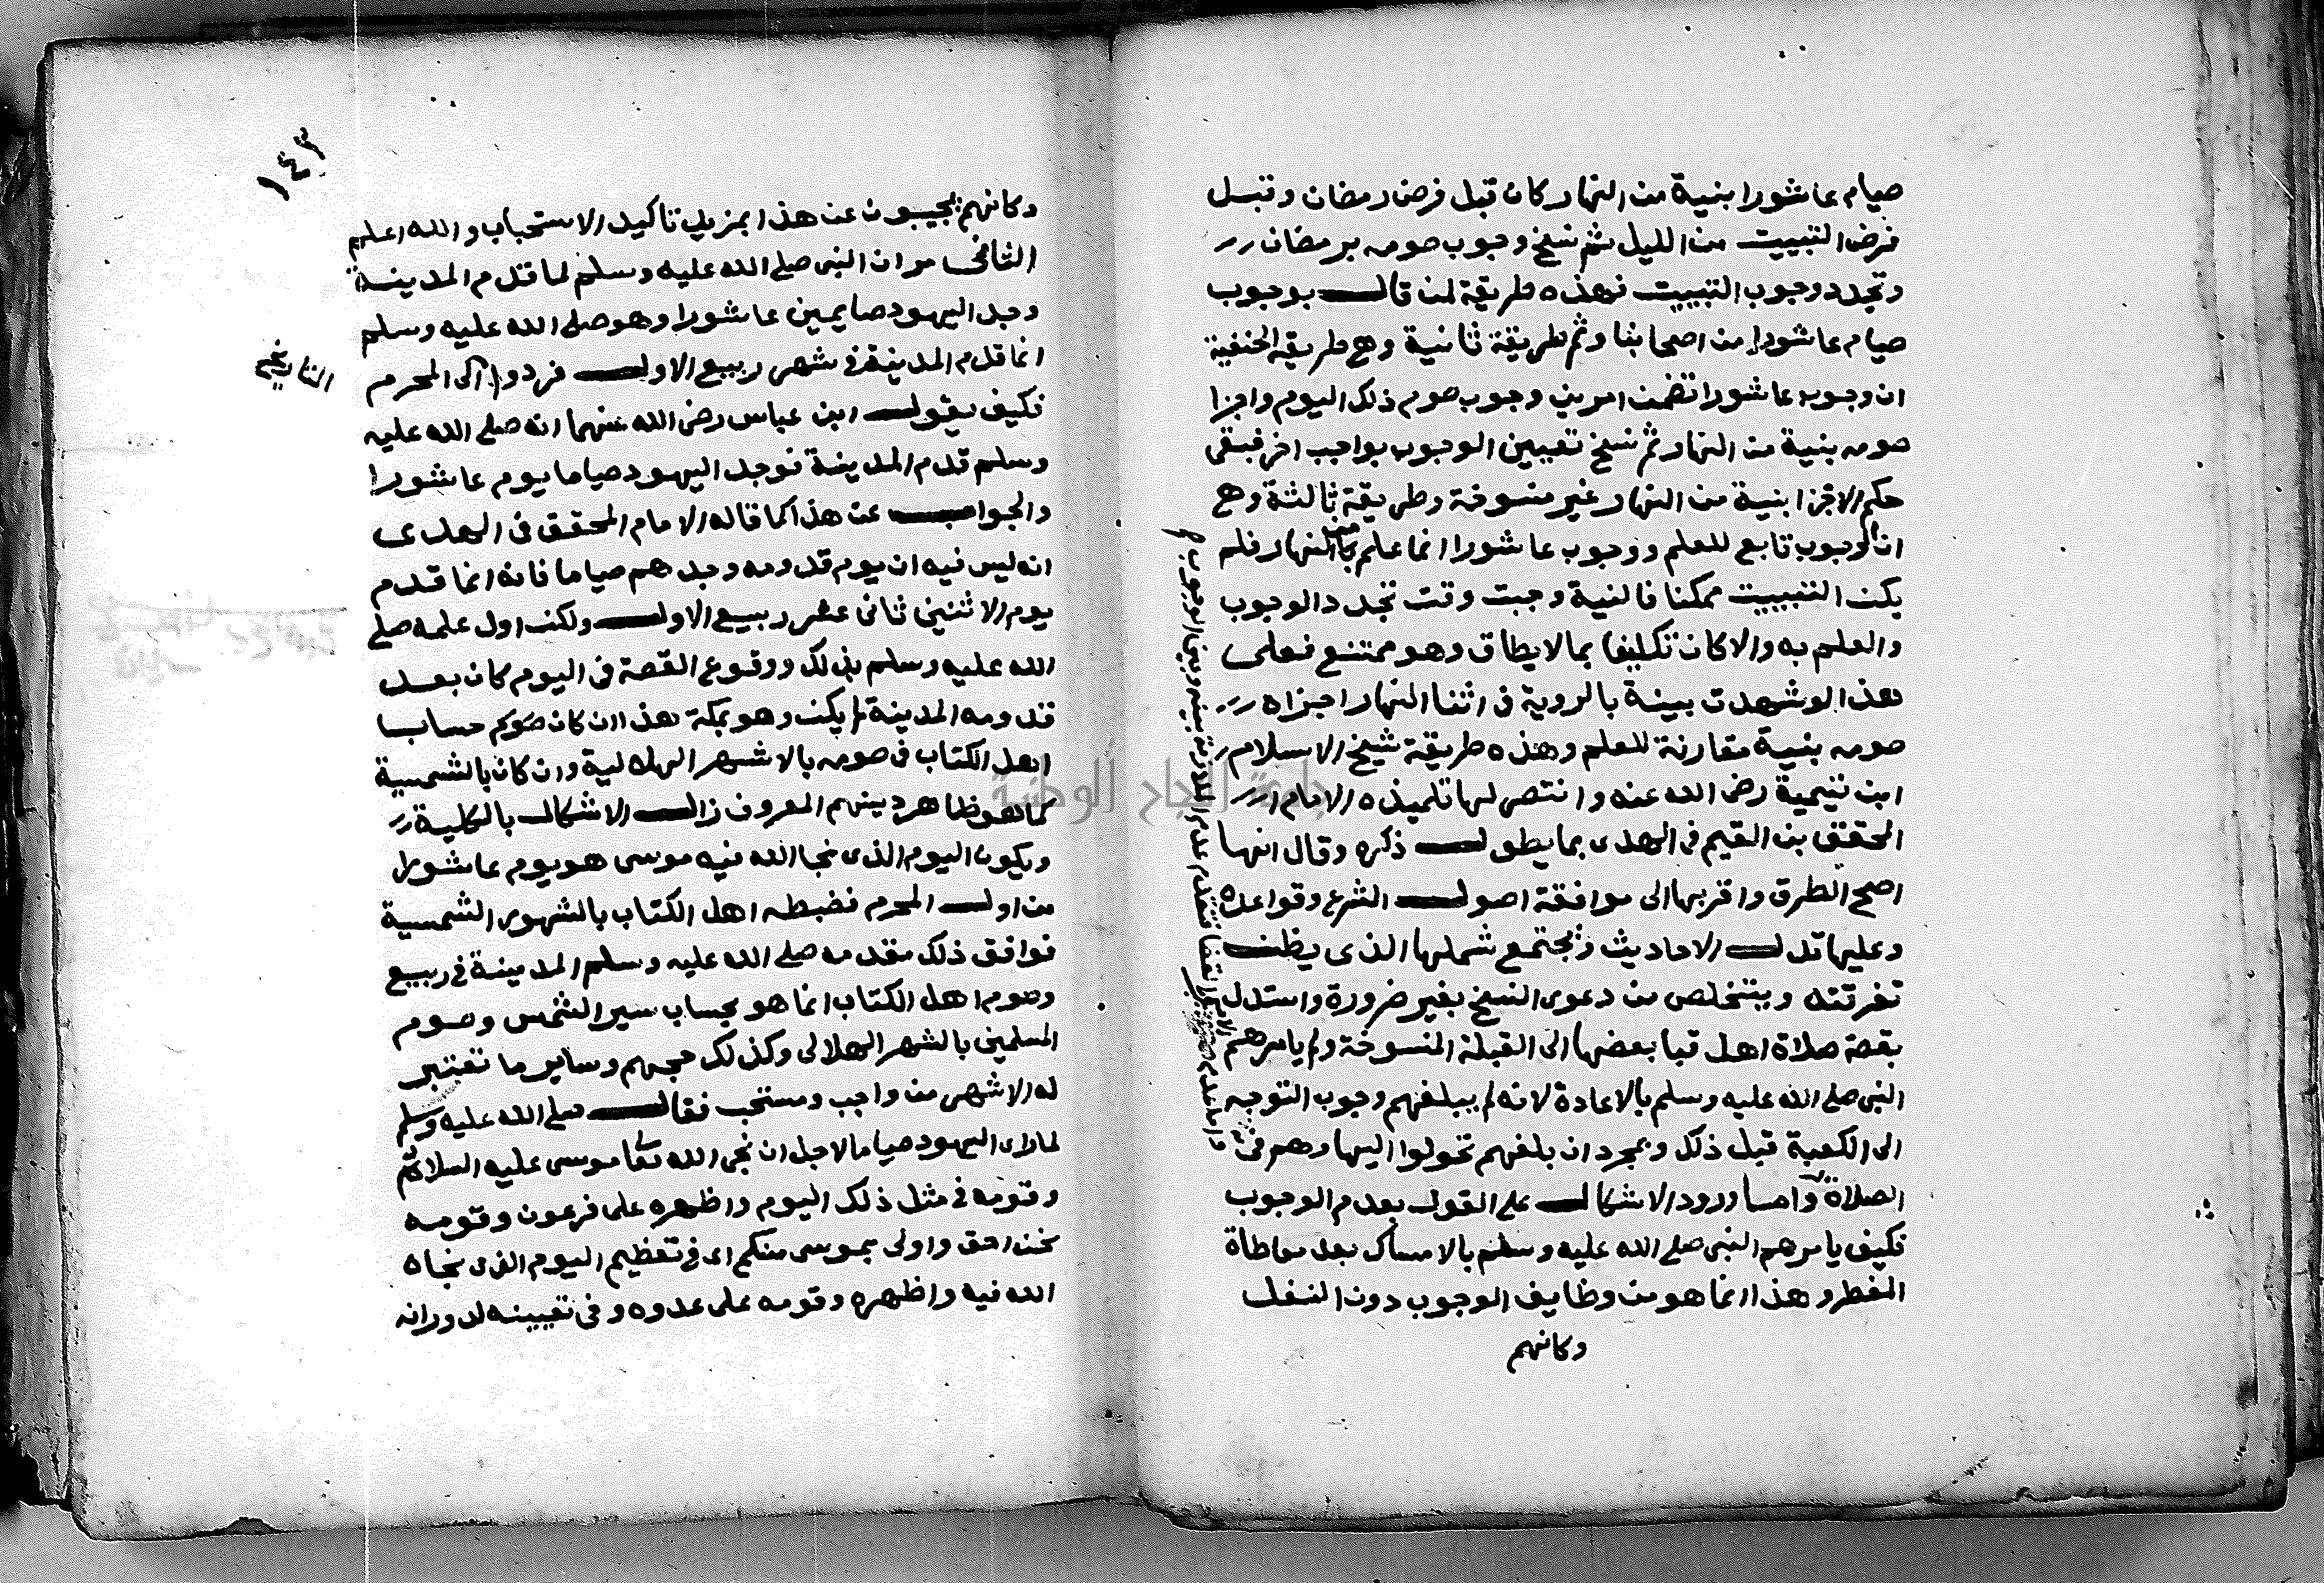 صيام عاشورا بنية من النهار كان قبل فرض رمضان وقبل
فرض التبييت من الليل ثم نسخ وجوب صومه برمضان
وتجدد وجوب التبييت فهذه طريقة لمن قال بوجوب
صيام عاشورا من اصحابنا وثم طريقة ثانية وهي طريقة الحنفية
ان وجوب عاشورا تضمن امرين وجوب صوم ذلك اليوم واجزا
صومه بنية من النهار ثم نسخ تعيين الوجوب بواجب اخر فبقى
حكم الاجزا بنية من النهار غير منسوخة وطريقة ثالثة وهي
ان الوجوب تابع للعلم ووجوب عاشورا انما علم من النهار فلم
يكن التبييت ممكنا فالنية وجبت وقت تجدد الوجوب
والعلم به والا كان تكليفا بما لا يطاق وهو ممتنع فعلى
هذا لو شهدت بينة بالروية في اثنا النهار اجزاه
صومه بنية مقارنة للعلم وهذه طريقة شيخ الاسلام
ابن تيمية رضى الله عنه وانتصر لها تلميذه الامام
المحقق بن القيم في الهدى بما يطول ذكره وقال انها
اصح الطرق واقربها الى موافقة اصول الشرع وقواعده
وعليها تدل الاحاديث ويجتمع شملها الذي يظن
تفرقته ويتخلص من دعوى النسخ بغير ضرورة واستدل
بقصة صلاة اهل قبا بعضها الى القبلة المنسوخة ولم يامرهم
النبي صلى الله عليه وسلم بالاعادة لانه لم يبلغهم وجوب التوجه
الى الكعبة قبل ذلك وبمجرد ان بلغهم تحولوا اليها وهم في
الصلاة واما ورود الاشكال على القول بعدم الوجوب
فكيف يامرهم النبي صلى الله عليه وسلم بالامساك بعد معاطاة
المفطر وهذا انما هو من وظايف الوجوب دون النفل
وكانهم
١٤٣
وكانهم يجيبون عن هذا بمزيد تاكيد الاستحباب والله اعلم
الثاني مر ان النبي صلى الله عليه وسلم لما قدم المدينة
وجد اليهود صايمين عاشورا وهو صلى الله عليه وسلم
انما قدم المدينة في شهر ربيع الاول فردوا الى المحرم
التاريخ
فكيف يقول ابن عباس رضى الله عنهما انه صلى الله عليه
وسلم قدم المدينة فوجد اليهود صياما يوم عاشورا
والجواب عن هذا كما قاله الامام المحقق في الهدى
انه ليس فيه ان يوم قدومه وجدهم صياما فانه انما قدم
يوم الاثنين ثاني عشر ربيع الاول ولكن اول علمه صلى
الله عليه وسلم بذلك ووقوع القصة في اليوم كان بعد
قدومه المدينة لم يكن وهو بمكة هذا ان كان صومهم حساب
اهل الكتاب في صومه بالاشهر الهلالية وان كان بالشمسية
كما هو ظاهر دينهم المعروف زال الاشكال بالكلية
ويكون اليوم الذي نجا الله فيه موسى هو يوم عاشورا
من اول المحرم فضبطه اهل الكتاب بالشهور الشمسية
فوافق ذلك مقدمه صلى الله عليه وسلم المدينة في ربيع
وصوم اهل الكتاب انما هو بحساب سير الشمس وصوم
المسلمين بالشهر الهلالى وكذلك حجهم وساير ما تعتبر
له الاشهر من واجب ومستحب فقال صلى الله عليه وسلم
لما راى اليهود صياما لاجل ان نجى الله تعا موسى عليه السلام
وقومه في مثل ذلك اليوم واظهره على فرعون وقومه
نحن احق واولى بموسى منكم اى في تعظيم اليوم الذى نجاه
الله فيه واظهره وقومه على عدوه وفي تعيينه لدورانه
جامعة النجاح الوطنية